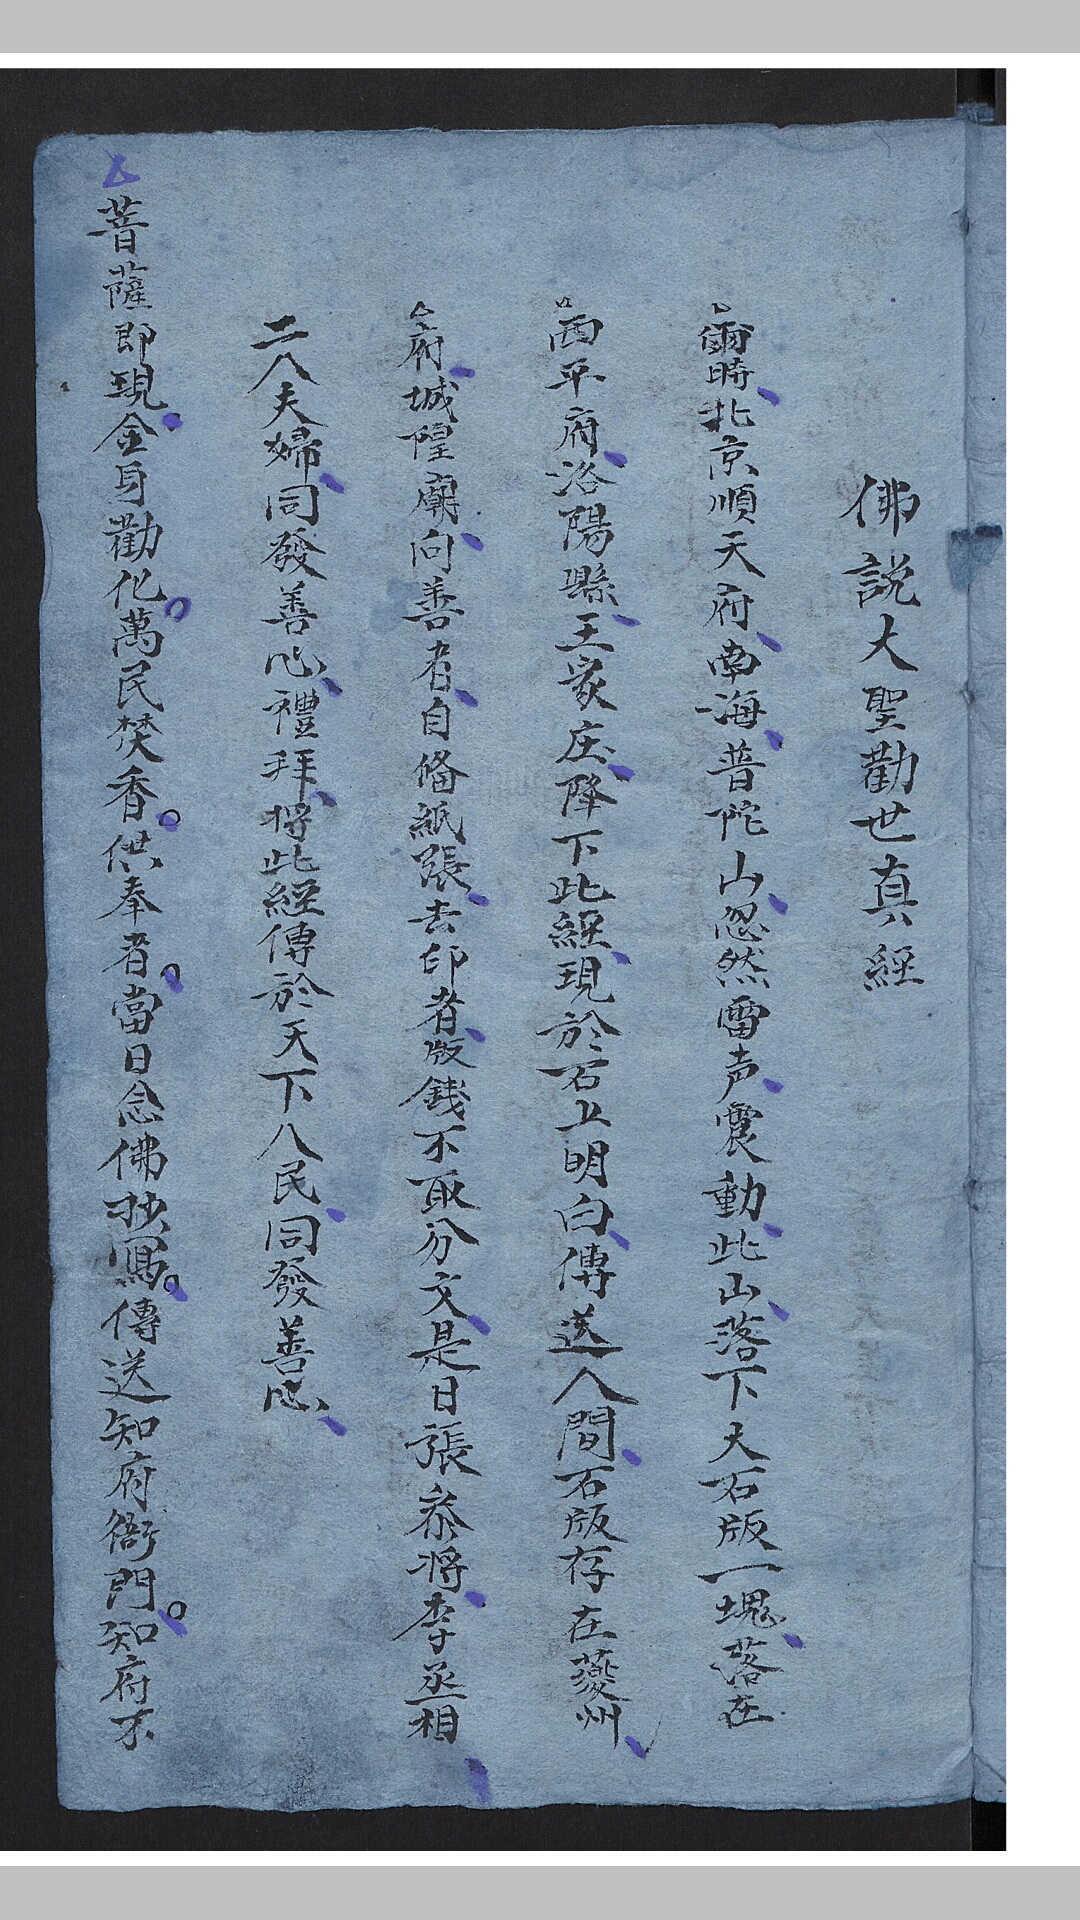 佛説大聖勸世真經
爾時北京順天府南海普陀山忽然雷声震動此山落下大石版一塊落在
西平府洛陽縣王家庄降下此經現於石上明白傳送人間石版存在夔州
府城隍廟向善者自俻紙張去印者版錢不取分文是日張叅将李丞相
二八夫婦同發善心禮拜将此經傳於天下八民同發善心
菩薩即現金身勸化萬民焚香供奉者當日念佛抄寫傳送知府衙門知府不